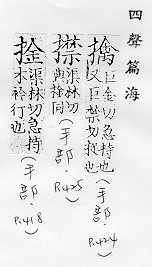 四聲篇海
擒 巨金切急持也
又巨禁切捉也
(手部. P.424)
㩒 渠林切
與捦同
(手部. P.425)
捦 渠林切急持
衿行也
(手部. P.418)